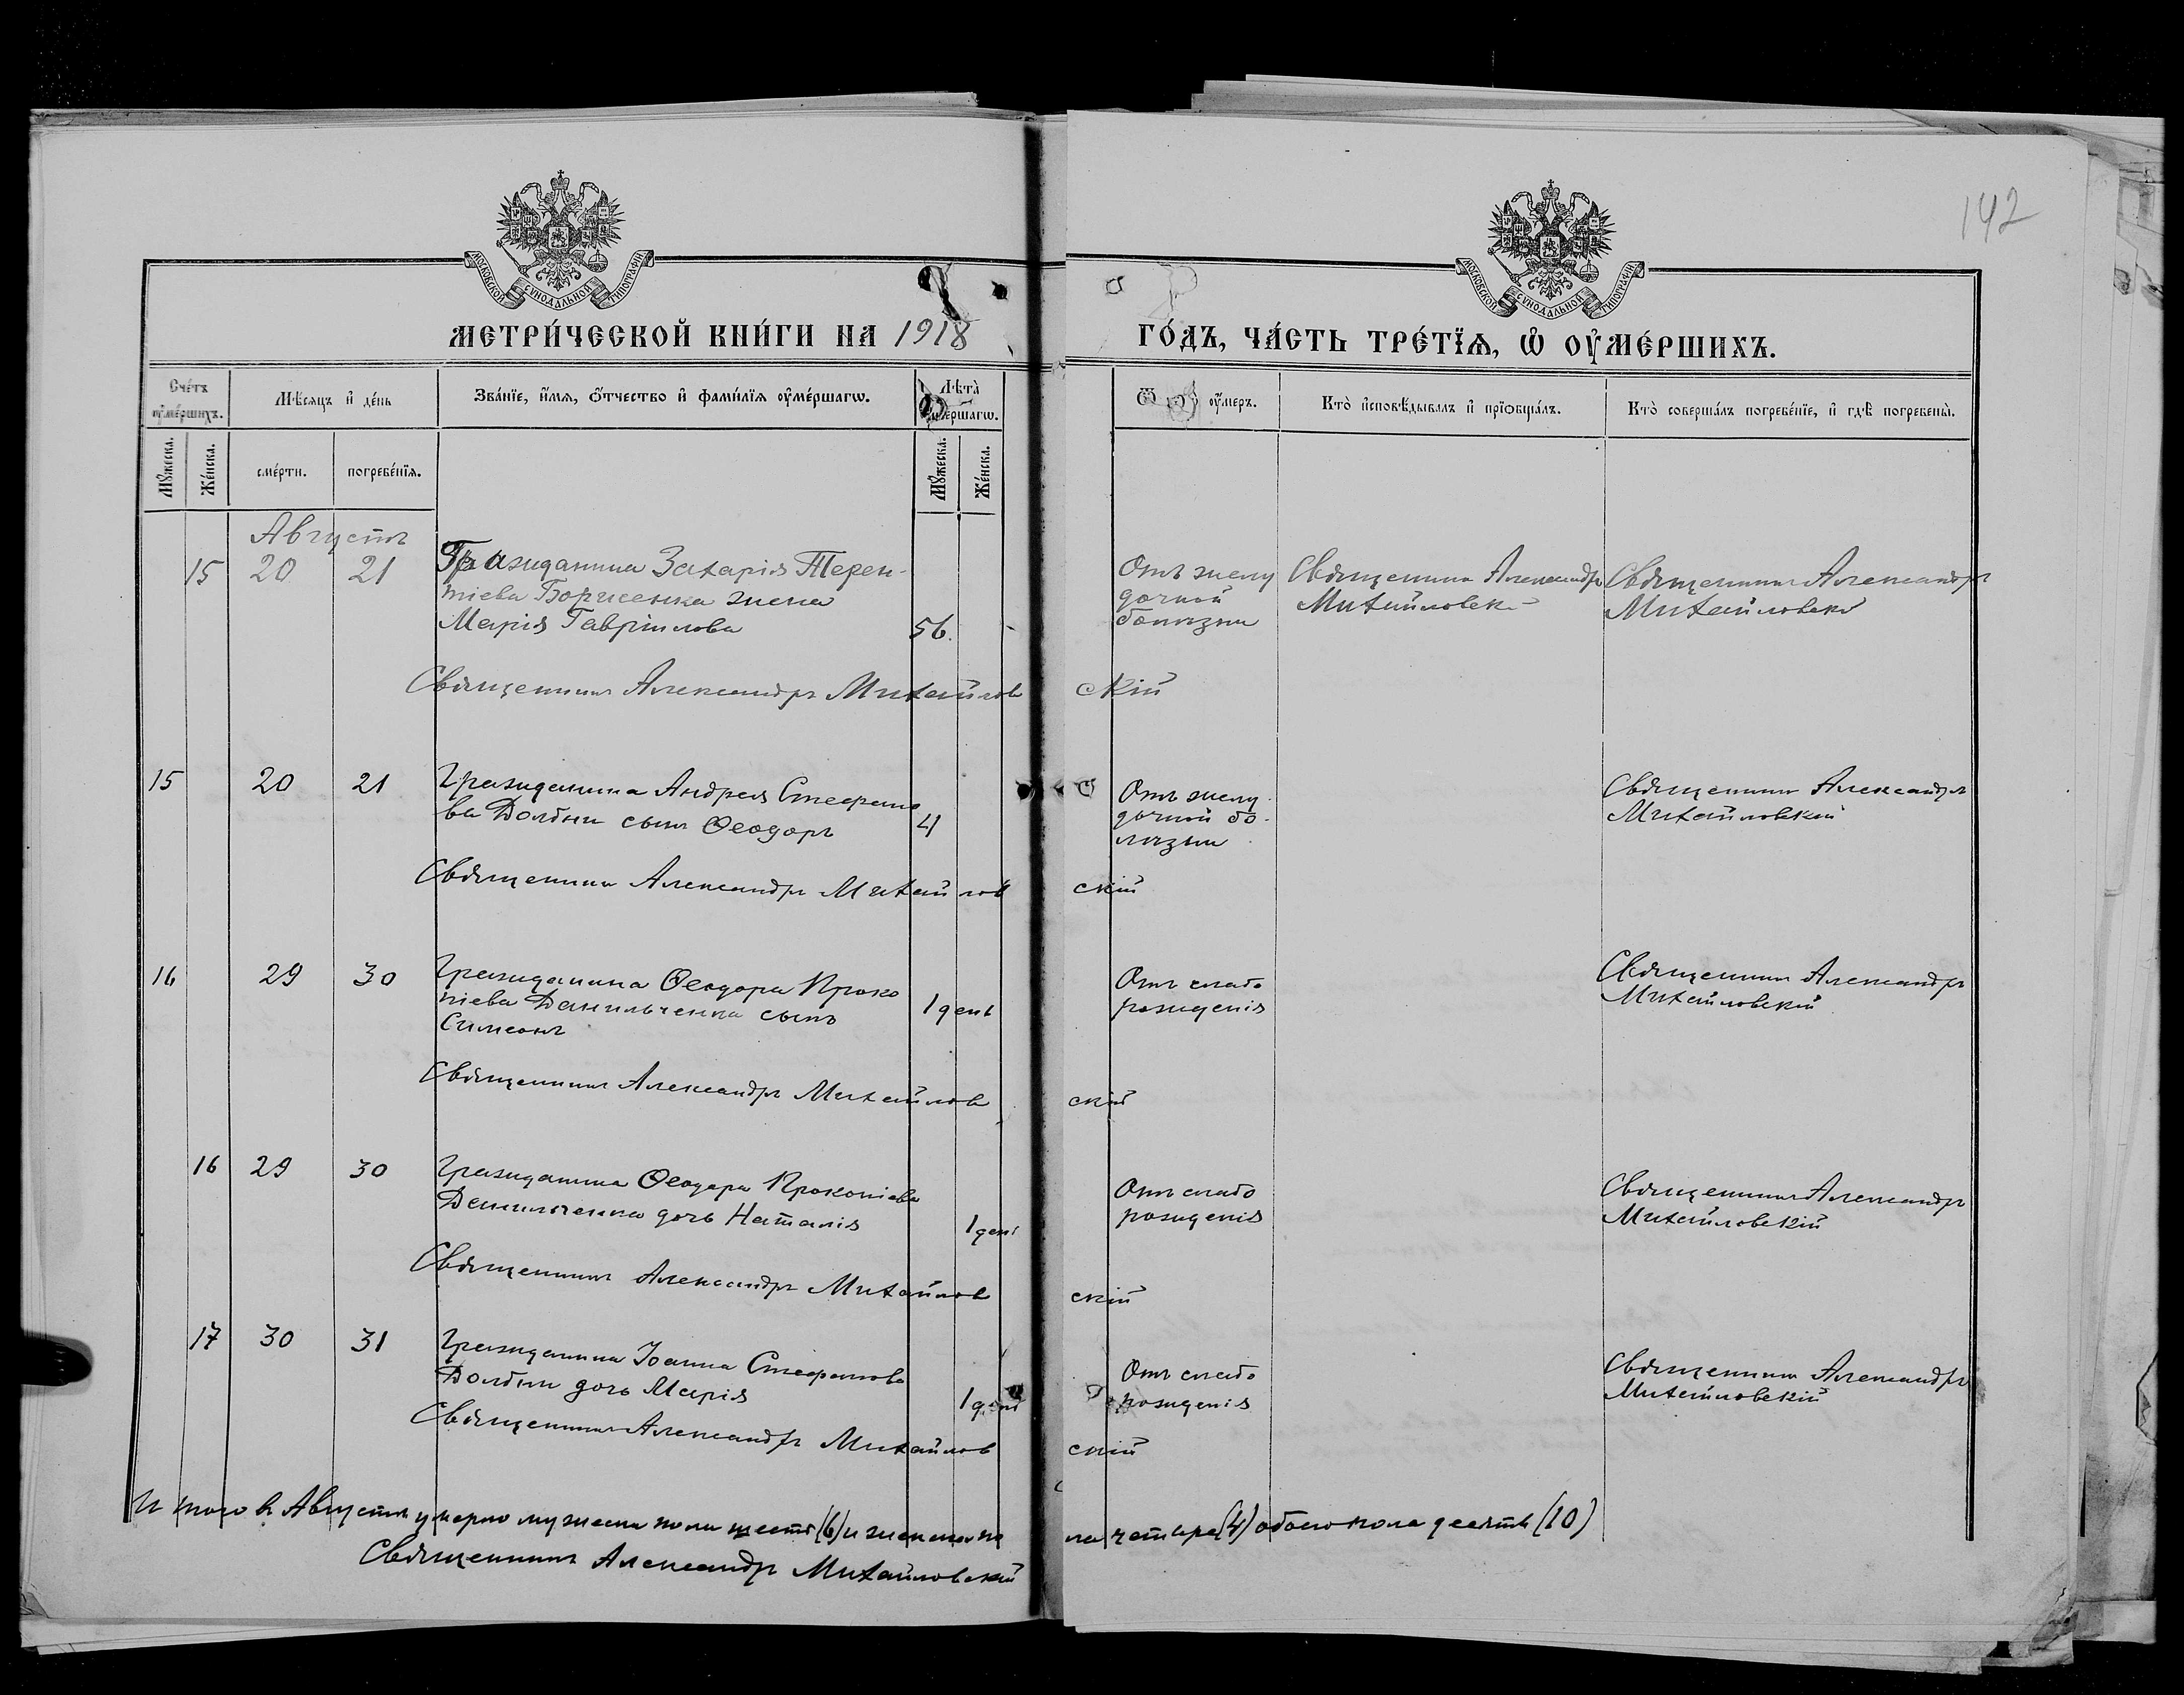 142
МОСКОВСКОЙ СУНОДАЛЬНОЙ ТИПОГРАФІИ
МОСКОВСКОЙ СУНОДАЛЬНОЙ ТИПОГРАФІИ
МЕТРИ́ЧЕСКОЙ КНИ́ГИ НА 1918
ГО́ДЪ, ЧА́СТЬ ТРЕ́ТЇѦ, Ѡ҆ ОУ҆МЕ́РШИХЪ.
Сче́тъ оу҆ме́ршихъ.
Мѣ́сяцъ и҆ де́нь
Зва́нїе, и҆́мѧ, ѻ҆́тчество и҆ фами́лїѧ оу҆ме́ршагѡ.
Лѣ́та оу҆ме́ршагѡ.
оу҆́меръ.
Кто̀ и҆сповѣ́дывалъ и҆ прїѡбща́лъ.
Кто̀ соверша́лъ погребе́нїе, и҆ гдѣ̀ погребены̀.
Мꙋ́жеска.
Же́нска.
сме́рти.
погребе́нїѧ.
Мꙋ́жеска.
Же́нска.
Августъ
15 20 21 Гражданина Захарія Терен-
тіева Борисенка жена
Марія Гавріилова 56.
Отъ желу
дочной
болѣзни
Священникъ Александръ
Михайловск
Священникъ Александръ
Михайловскій
Священникъ Александръ Михайловскій
15 20 21 Гражданина Андрея Стефано
ва Долбни сынъ Ѳеодоръ 4
Отъ желу
дочной бо-
лѣзни
Священникъ Александръ
Михайловскій
Священникъ Александръ Михайловскій
16 29 30 Гражданина Ѳеодора Проко
піева Данильченка сынъ
Симеонъ 1 день
Отъ слабо
рожденія
Священникъ Александръ
Михайловскій
Священникъ Александръ Михайловскій
16 29 30 Гражданина Ѳеодора Прокопіева
Данильченка дочь Наталія 1 день
Отъ слабо
рожденія
Священникъ Александръ
Михайловскій
Священникъ Александръ Михайловскій
17 30 31 Гражданина Іоанна Стефанова
Долбни дочь Марія 1 день
Отъ слабо
рожденія
Священникъ Александръ
Михайловскій
Священникъ Александръ Михайловскій
И того въ Августѣ умерло мужеска пола шесть (6) и женска по
ла четыре (4) обоего пола десять (10)
Священникъ Александръ Михайловскій